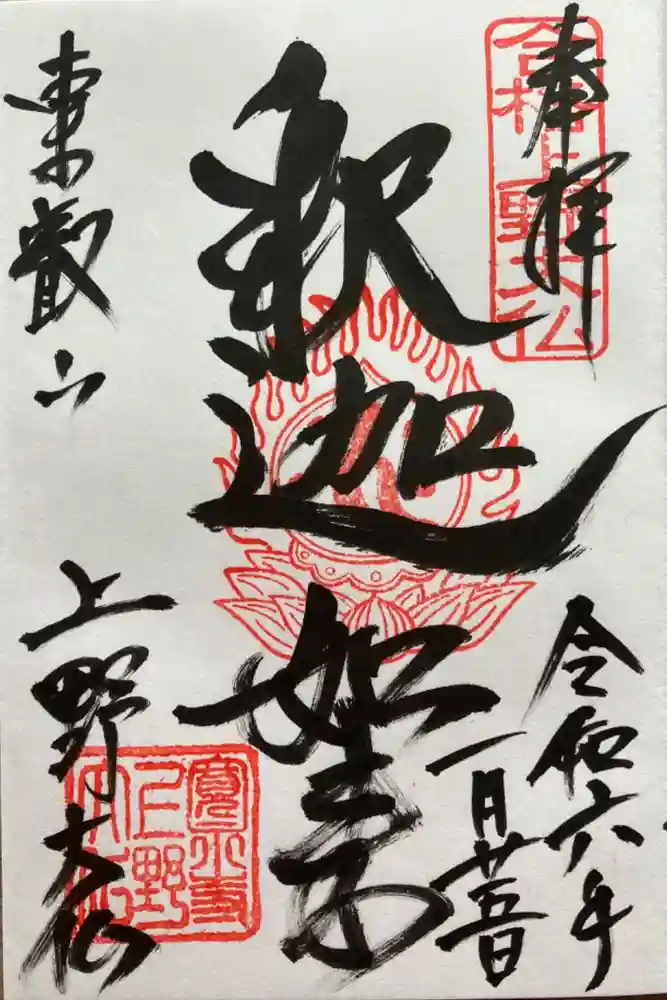 奉拝
合格上野大仏
令和六年
一月廿五日
釈迦如来
東叡山
上野大仏
寛永寺
上野
大仏